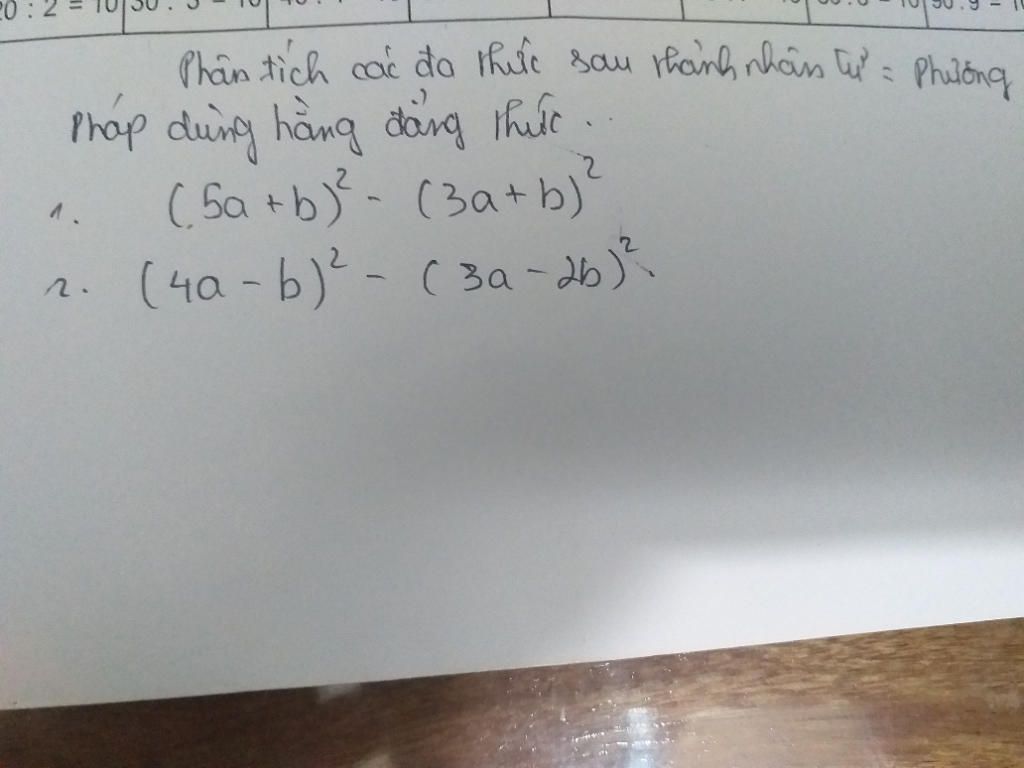 20 : 2 = 10
Phân tích các đa thức sau thành nhân tử = Phương
pháp dùng hằng đẳng thức..
1. (5a + b)² - (3a + b)²
2. (4a - b)² - (3a - 2b)².